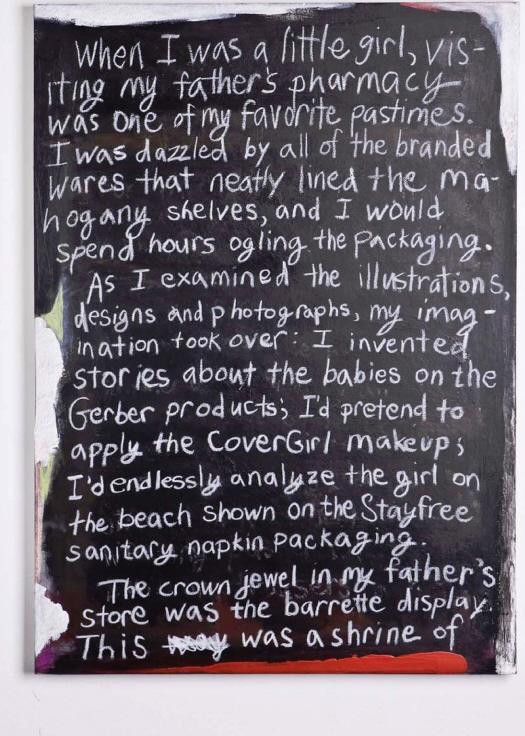 When I was a little girl, vis-
iting my father's pharmacy
was one of my favorite pastimes.
I was dazzled by all of the branded
wares that neatly lined the ma-
hogany shelves, and I would
spend hours ogling the packaging.
As I examined the illustrations,
designs and photographs, my imag-
ination took over: I invented
stories about the babies on the
Gerber products; I'd pretend to
apply the CoverGirl makeup;
I'd endlessly analyze the girl on
the beach shown on the Stayfree
sanitary napkin packaging.
The crown jewel in my father's
store was the barrette display.
This was a shrine of